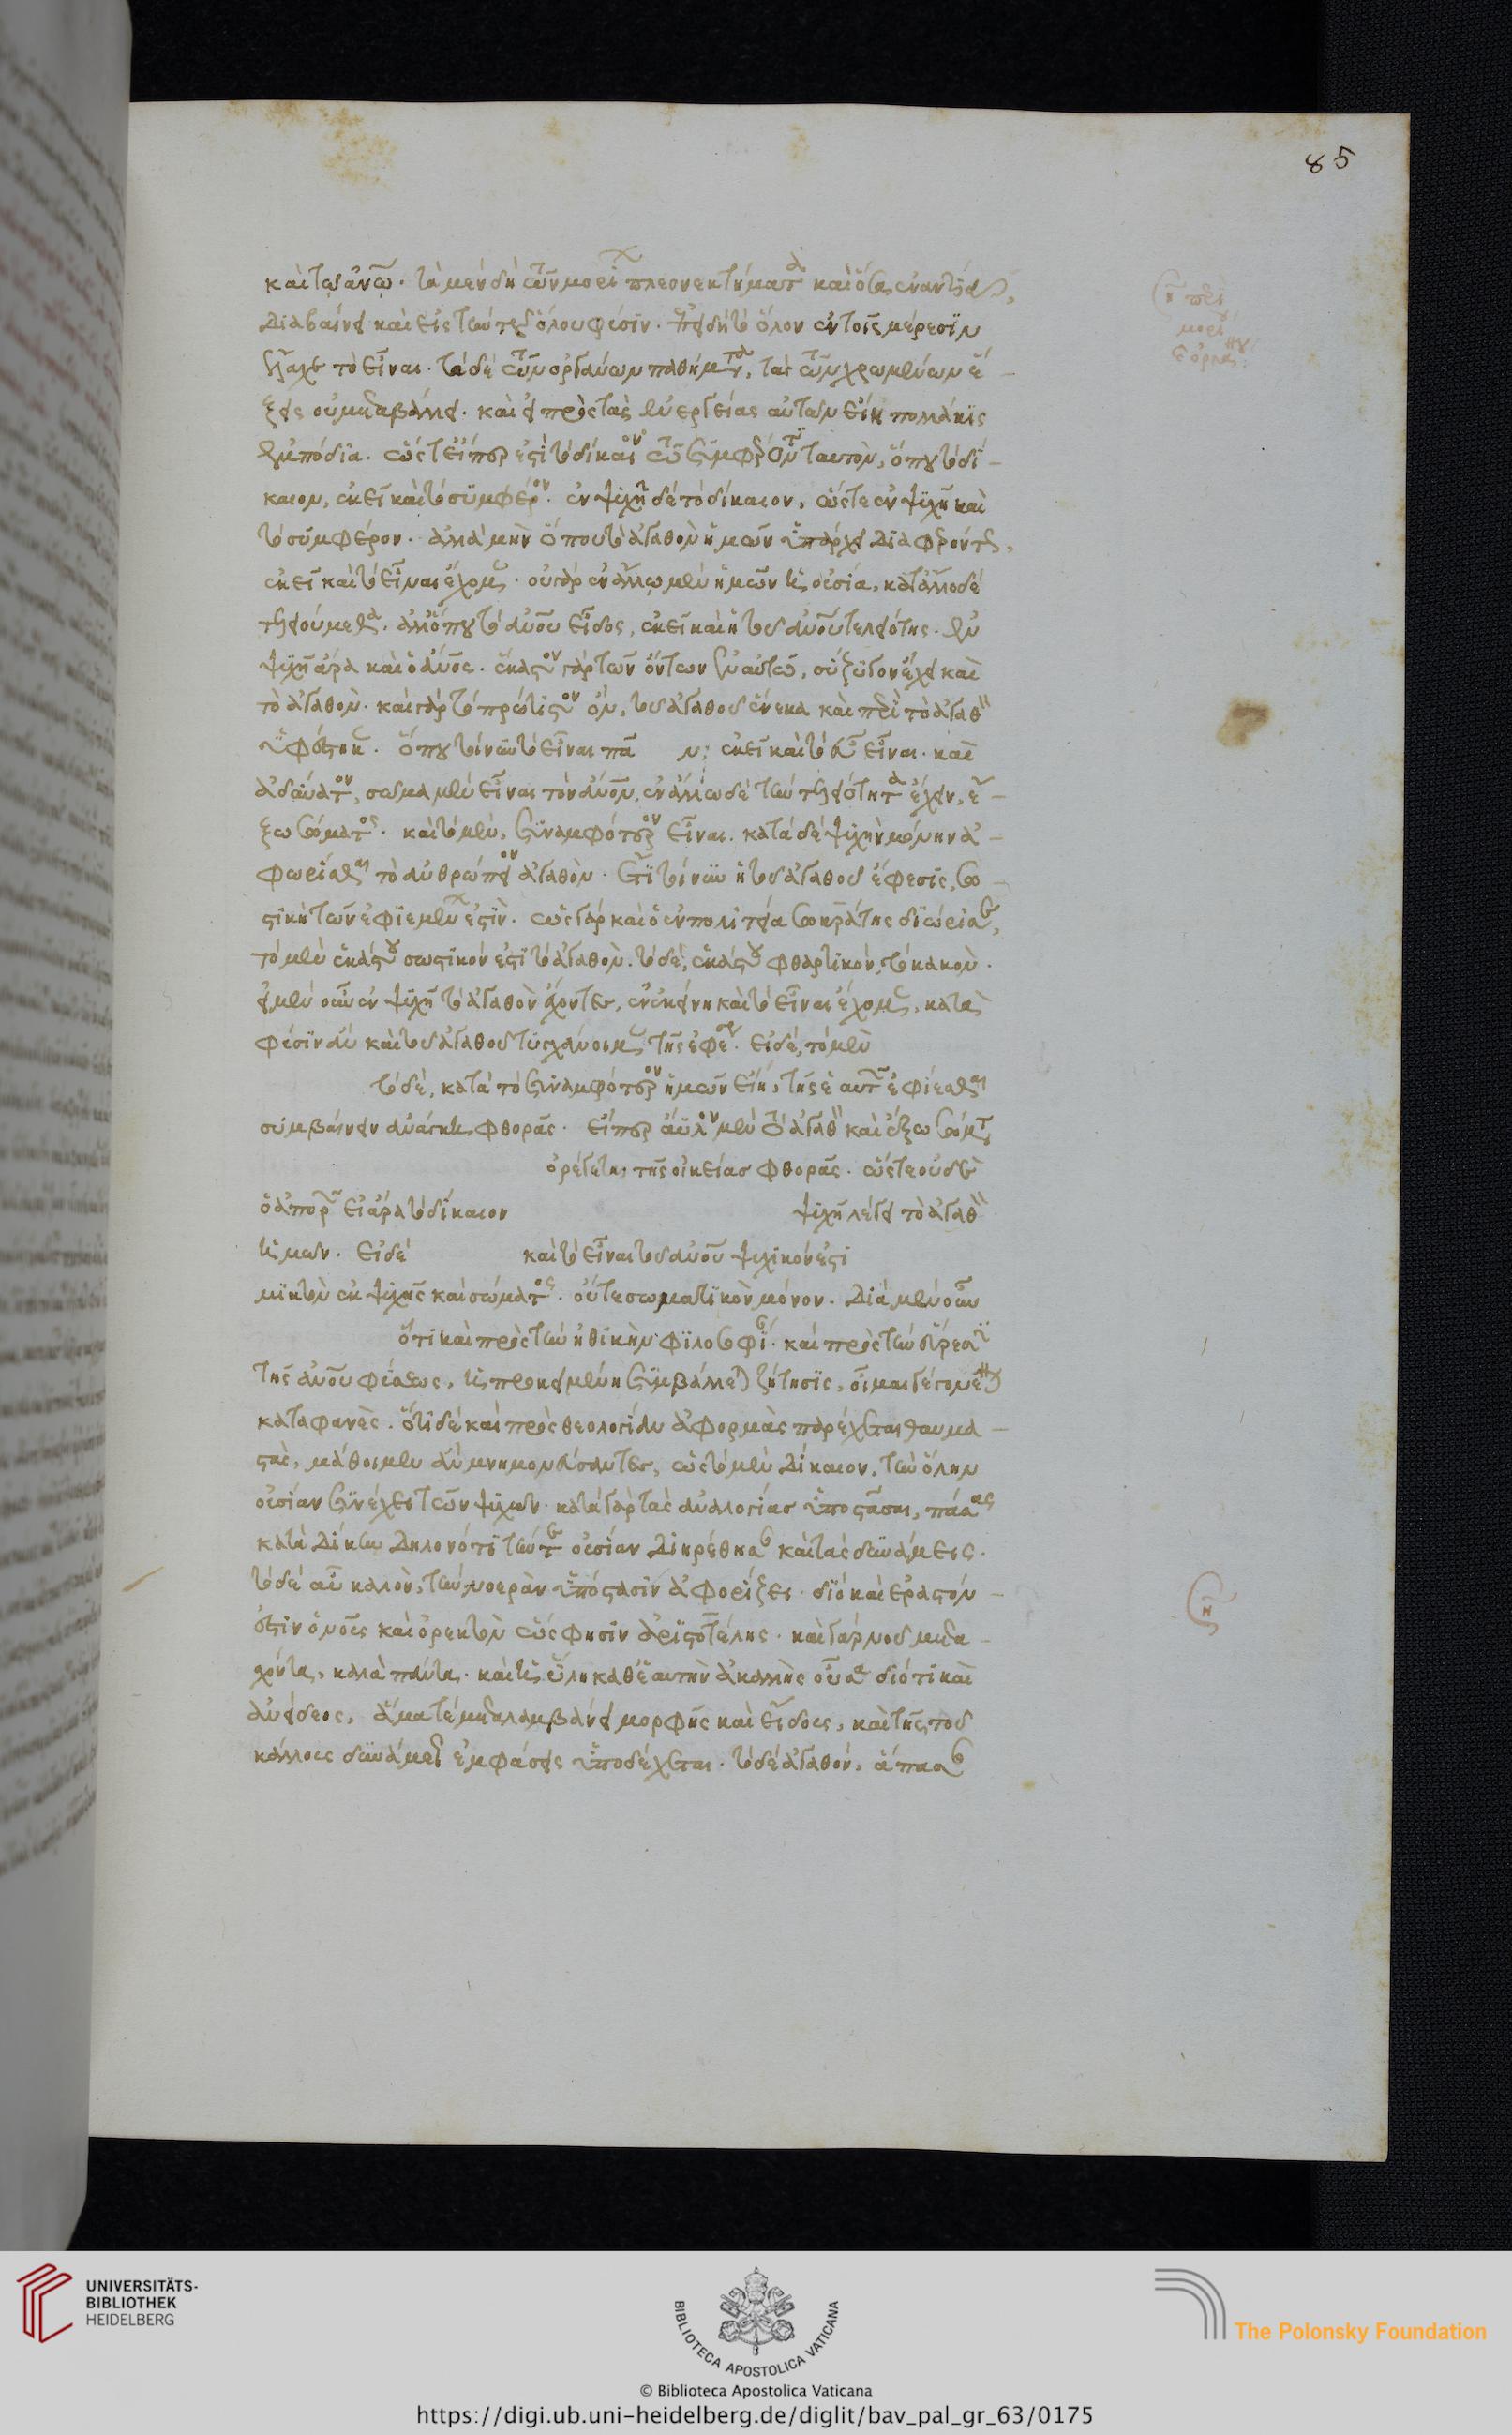 85
καὶ τῷ ἀνῳ. τὰ μὲν δὴ τῶν πλεονεκτήματα καὶ ὅσα ἐναντία
διαβαίνει καὶ εἰς τὴν ὅλου φύσιν. ἐπειδὴ τὸ ὅλον ἐν τοῖς μέρεσιν
ἔλαχε τὸ εἶναι. τὰ δὲ τῶν ὀργάνων παθήματα, τὰς τῶν χρωμένων ἕ-
ξεις οὐ μεταβάλλει. καὶ εἰ πρὸς τὰς ἐνεργείας αὐτῶν εἴη πολλάκις
ἐμπόδια. ὥστ εἴπερ ἐστὶ τὸ δίκαιον τῷ συμφέροντι ταυτὸν, ὅπου τὸ δί-
καιον, ἐκεῖ καὶ τὸ συμφέρον. ἐν ψυχῇ δὲ τὸ δίκαιον, ὥστε ἐν ψυχῇ καὶ
τὸ συμφέρον. ἀλλὰ μὴν ὅπου τὸ ἀγαθὸν ἡμῶν ὑπάρχει διαφερόντως,
ἐκεῖ καὶ τὸ εἶναι ἔχομεν. οὐ γὰρ ἐν ἄλλῳ μὲν ἡμῶν ἡ οὐσία, κατ ἄλλο δὲ
τελειούμεθα. ἀλλ ὅπου τὸ ἀνου εἶδος, ἐκεῖ καὶ ἡ τοῦ ἀνου τελειότης. ἐν
ψυχῇ ἄρα καὶ ὁ ἀνος. ἕκαστον γὰρ τῶν ὄντων ἐν αὑτῷ, σύζυγον ἔχει καὶ
τὸ ἀγαθὸν. καὶ γὰρ τὸ πρώτιστον ὂν, τοῦ ἀγαθοῦ ἕνεκα καὶ περὶ τὸ ἀγαθὸν
ὑφέστηκεν. ὅπου τοίνυν τὸ εἶναι πᾶ ν; ἐκεῖ καὶ τὸ εὖ εἶναι. καὶ
ἀδύνατον, σῶμα μὲν εἶναι τὸν ἀνον, ἐν ἄλλῳ δὲ τὴν τελειότητα ἔχειν, ἔ-
ξω σώματος. καὶ τὸ μὲν, συναμφότερον εἶναι. κατὰ δὲ ψυχὴν μόνην ἀ-
φωρίσθαι τὸ ἀνθρώπειον ἀγαθὸν. ἔτι τοίνυν ἡ τοῦ ἀγαθοῦ ἔφεσις, σω-
στικὴ τῶν ἐφιεμένων ἐστὶν. ὡς γὰρ καὶ ὁ ἐν πολιτείᾳ σωκράτης διώρισε,
τὸ μὲν ἑκάστου σωστικόν ἐστι τὸ ἀγαθὸν. τὸ δὲ, ἑκάστου φθαρτικόν, τὸ κακὸν.
εἰ μὲν οὖν ἐν ψυχῇ τὸ ἀγαθὸν ἔχοντες, ἐν ἐκείνῃ καὶ τὸ εἶναι ἔχομεν, κατὰ
φύσιν ἂν καὶ τοῦ ἀγαθοῦ τυγχάνοιμεν τῆς ἐφέσεως. εἰ δὲ, τὸ μὲν
τὸ δὲ, κατὰ τὸ συναμφότερον ἡμῶν εἴη, τῆς ἑαυτῶν ἐφίεσθαι
συμβαίνειν ἀνάγκη φθορᾶς. εἴπερ ἄυλον μὲν τὸ ἀγαθὸν καὶ ἔξω σώματος
ὀρέγεται τῆς οἰκείας φθορᾶς. ὥστε οὐδὲν
ὁ ἀπορῶν εἰ ἄρα τὸ δίκαιον ψυχῇ λέγει τὸ ἀγαθὸν
ἡμῶν. εἰ δὲ καὶ τὸ εἶναι τοῦ ἀνου ψυχικόν ἐστι
μικτὸν ἐκ ψυχῆς καὶ σώματος. οὔτε σωματικὸν μόνον. διὰ μὲν οὖν
ὅτι καὶ πρὸς τὴν ἠθικὴν φιλοσοφίαν. καὶ πρὸς τὴν εὕρεσιν
τῆς ἀνου φύσεως, ἡ προκειμένη συμβάλλεται ζήτησις, οἶμαι γέγονε
καταφανὲς. ὅτι δὲ καὶ πρὸς θεολογίαν ἀφορμὰς παρέχεται θαυμα-
στὰς, μάθοιμεν ἂν μνημονεύσαντες, ὡς τὸ μὲν δίκαιον, τὴν ὅλην
οὐσίαν συνέχει τῶν ψυχῶν. κατὰ γὰρ τὰς ἀναλογίας ὑποστᾶσαι, πάσας
κατὰ δίκην δηλονότι τὴν τε οὐσίαν διηρέθησαν καὶ τὰς δυνάμεις.
τὸ δὲ αὖ καλὸν, τὴν νοερὰν ὑπόστασιν ἀφορίζει. διὸ καὶ ἐραστόν
ἐστιν ὁ νοῦς καὶ ὀρεκτὸν ὥς φησιν ἀριστοτέλης. καὶ γὰρ νοῦ μετα-
χόντα, καλὰ πάντα. καὶ ἡ ὕλη καθ ἑαυτὴν ἀκαλλὴς οὖσα διότι καὶ
ἀνείδεος, ἅμα τε μεταλαμβάνει μορφῆς καὶ εἴδους, καὶ τῆς τοῦ
κάλλους δυνάμεως ἐμφάσεις ὑποδέχεται. τὸ δὲ ἀγαθόν, ἅπασαν
UNIVERSITÄTS-
BIBLIOTHEK
HEIDELBERG
BIBLIOTECA APOSTOLICA VATICANA
The Polonsky Foundation
© Biblioteca Apostolica Vaticana
https://digi.ub.uni-heidelberg.de/diglit/bav_pal_gr_63/0175